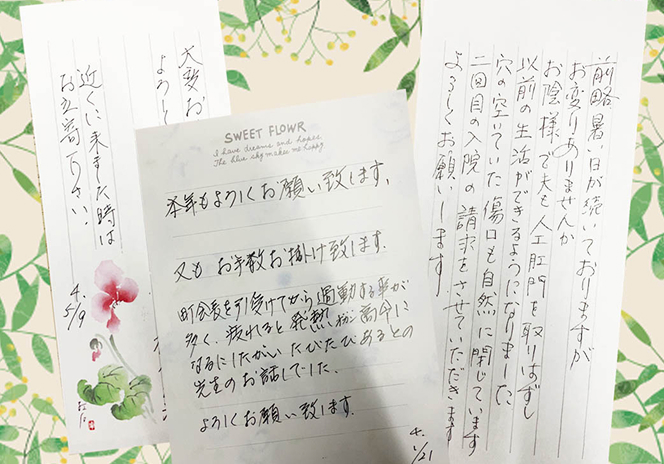 前略 暑い日が続いておりますが
お変りありませんか
お陰様で夫も人工肛門を取りはずし
以前の生活ができるようになりました
穴の空いていた傷口も自然に閉じています
二回目の入院の請求をさせていただきます
よろしくお願いします
SWEET FLOWR
I have dreams and hopes
The blue sky makes me happy
本年もよろしくお願い致します。
又も お手数お掛け致します。
町会長を引受けてから過動する事が
多く、疲れると発熱
なるにしたがい たびたびあるとの
先生のお話しでした。
よろしくお願い致します。
4.
1/21
大変お
よろし
近くに来ました時は
お立寄下さい。
4.
5/9